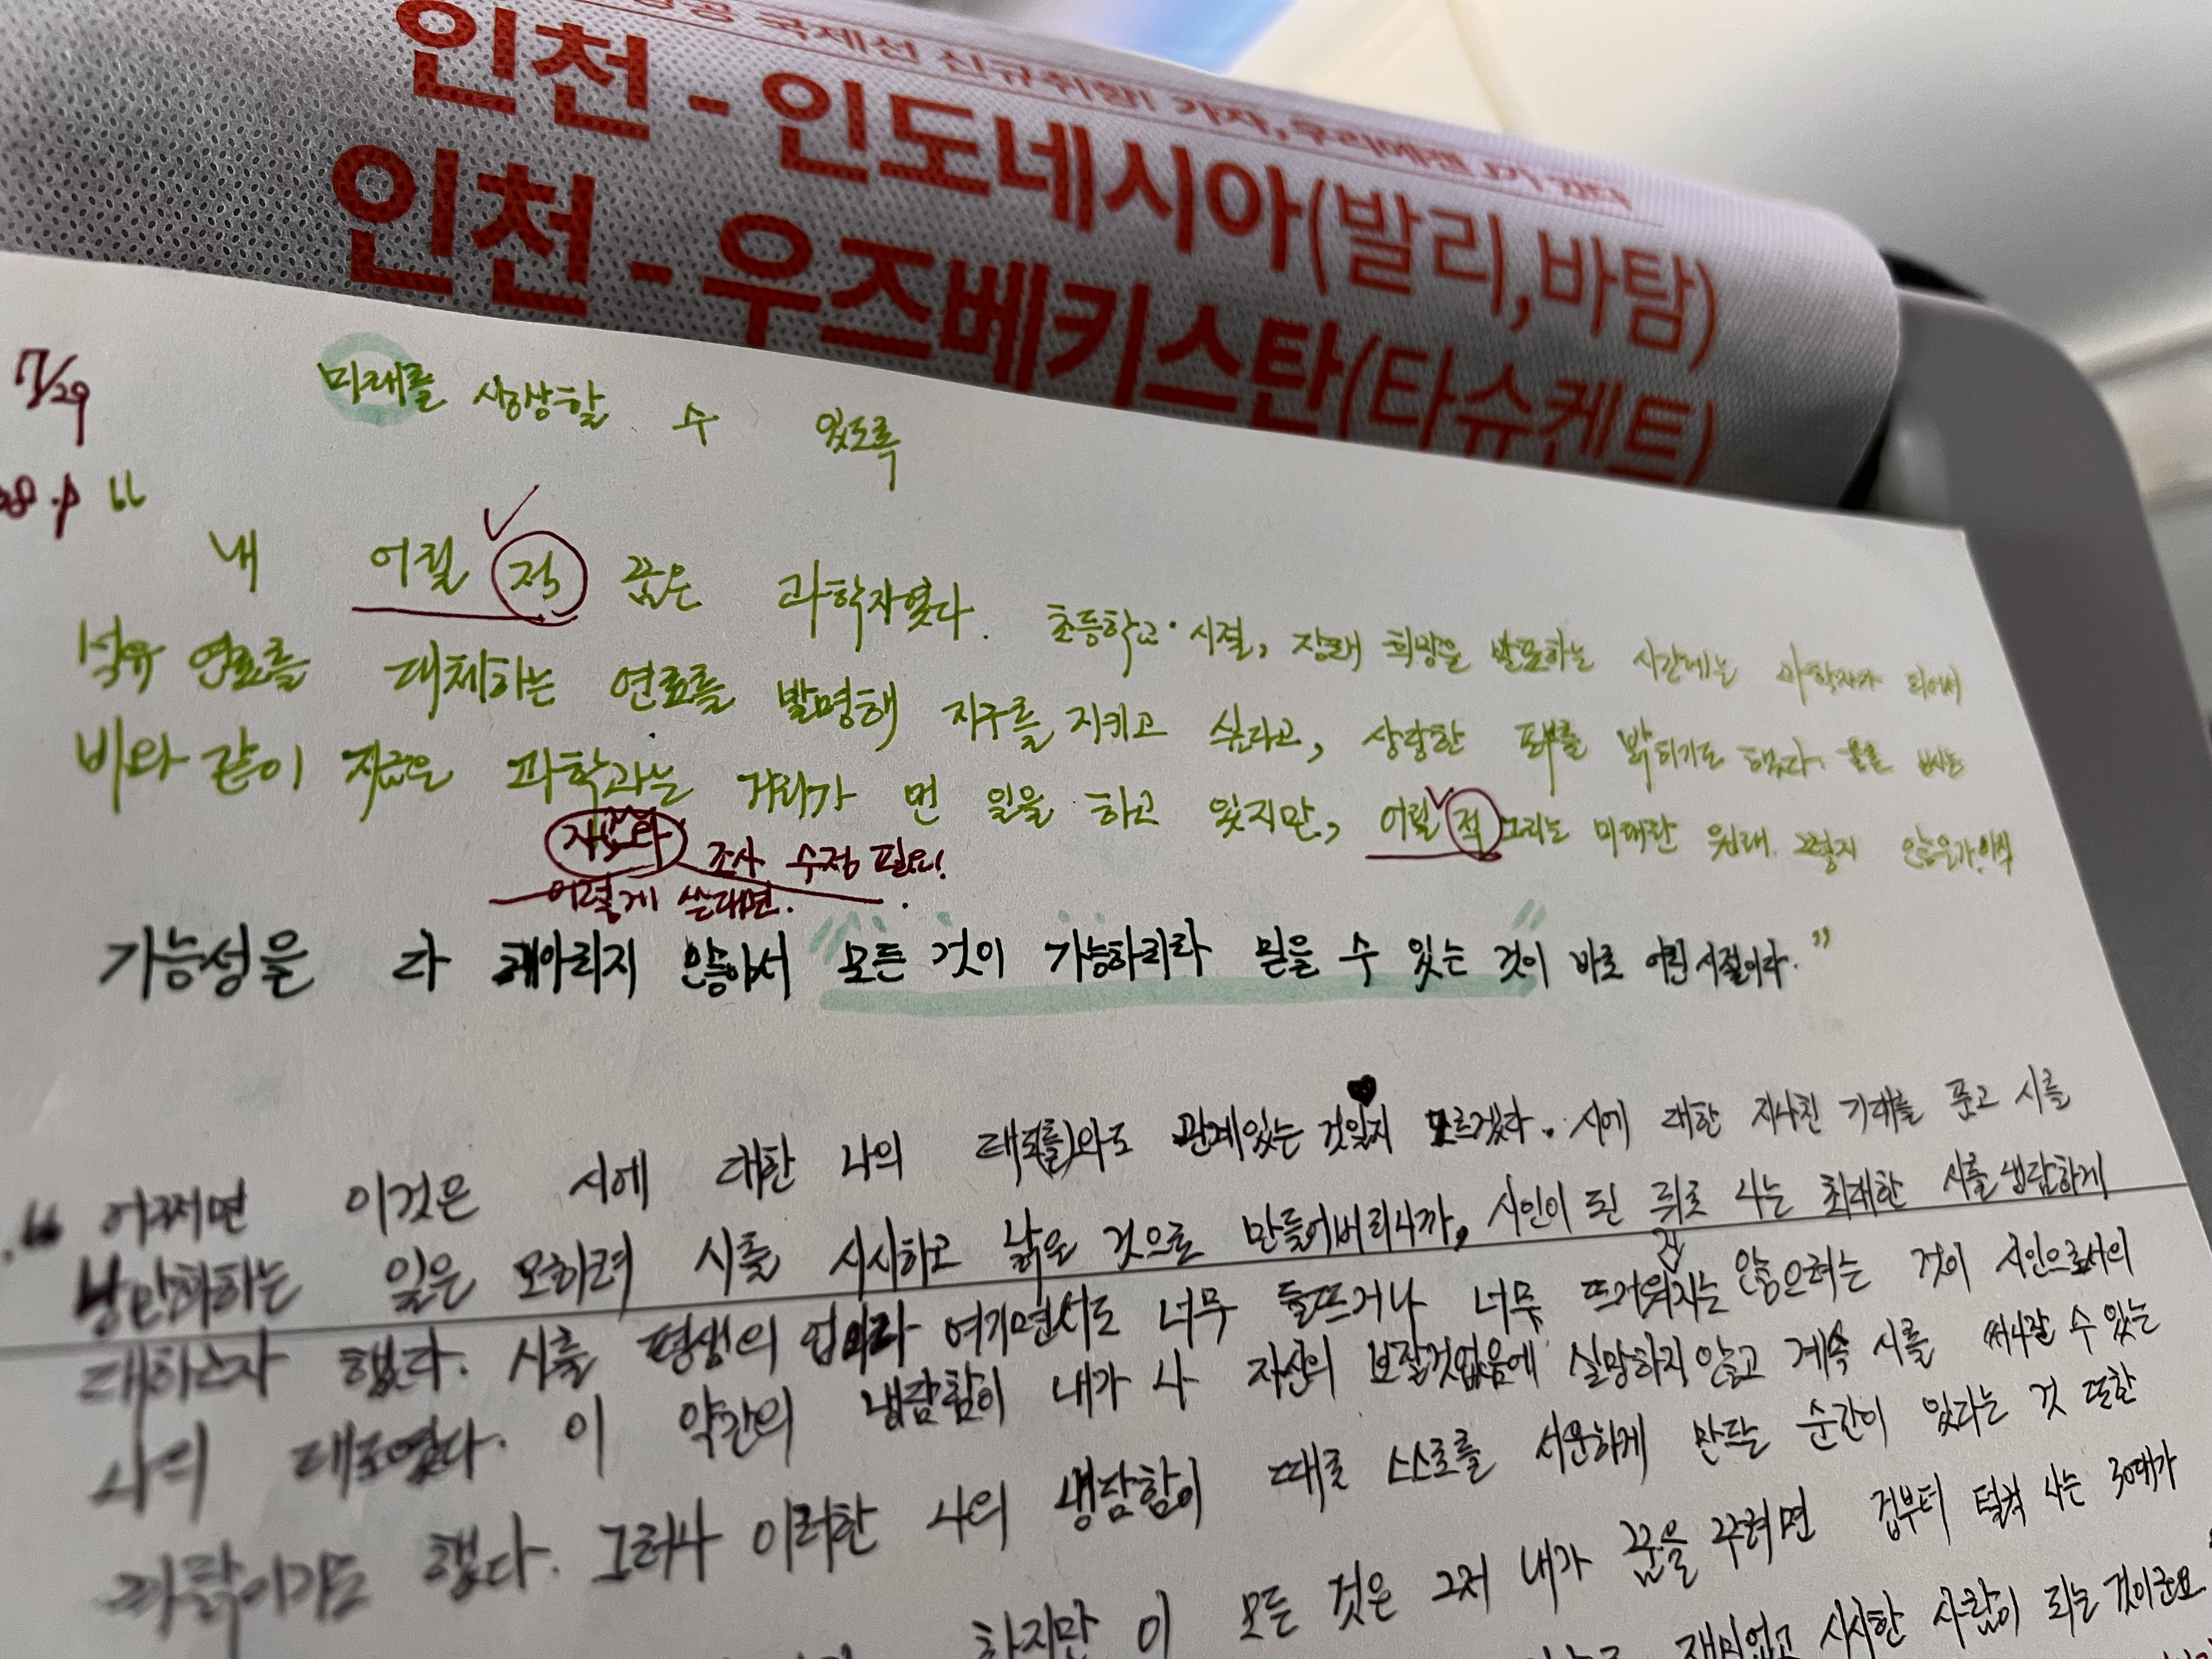 국제선 신규취항! 가자, 우리에겐
인천 - 인도네시아(발리,바탐)
인천 - 우즈베키스탄(타슈켄트)
7/29
미래를 상상할 수 있도록
p "
내 어릴 적 꿈은 과학자였다. 초등학교 시절, 장래 희망을 발표하는 시간에는 과학자가 되어서
석유 연료를 대체하는 연료를 발명해 지구를 지키고 싶다고, 상당한 포부를 밝히기도 했다.
비와 같이 지금은 과학과는 거리가 먼 일을 하고 있지만, 어릴 적 그리는 미래란 원래 그렇지 않은가. 아직
조사 수정 필요!
이렇게 쓴다면.
가능성을 다 헤아리지 않아서 모든 것이 가능하리라 믿을 수 있는 것이 바로 어린 시절이다."
" 어쩌면 이것은 시에 대한 나의 태도(를)와도 관계있는 것일지 모르겠다. 시에 대한 지나친 기대를 품고 시를
낭만화하는 일은 오히려 시를 시시하고 낡은 것으로 만들어버리니까, 시인이 된 뒤로 나는 최대한 시를 냉담하게
대하고자 했다. 시를 평생의 업이라 여기면서도 너무 들뜨거나 너무 뜨거워지는 않으려는 것이 시인으로서의
나의 태도였다. 이 약간의 냉담함이 내가 나 자신의 보잘것없음에 실망하지 않고 계속 시를 써나갈 수 있는
까닭이기도 했다. 그러나 이러한 나의 냉담함이 때로 스스로를 서운하게 만드는 순간이 있다는 것 또한
하지만 이 모든 것은 그저 내가 꿈을 꾸려면 겁부터 덜컥 나는 30대가
재미없고 시시한 사람이 되는 것이군요